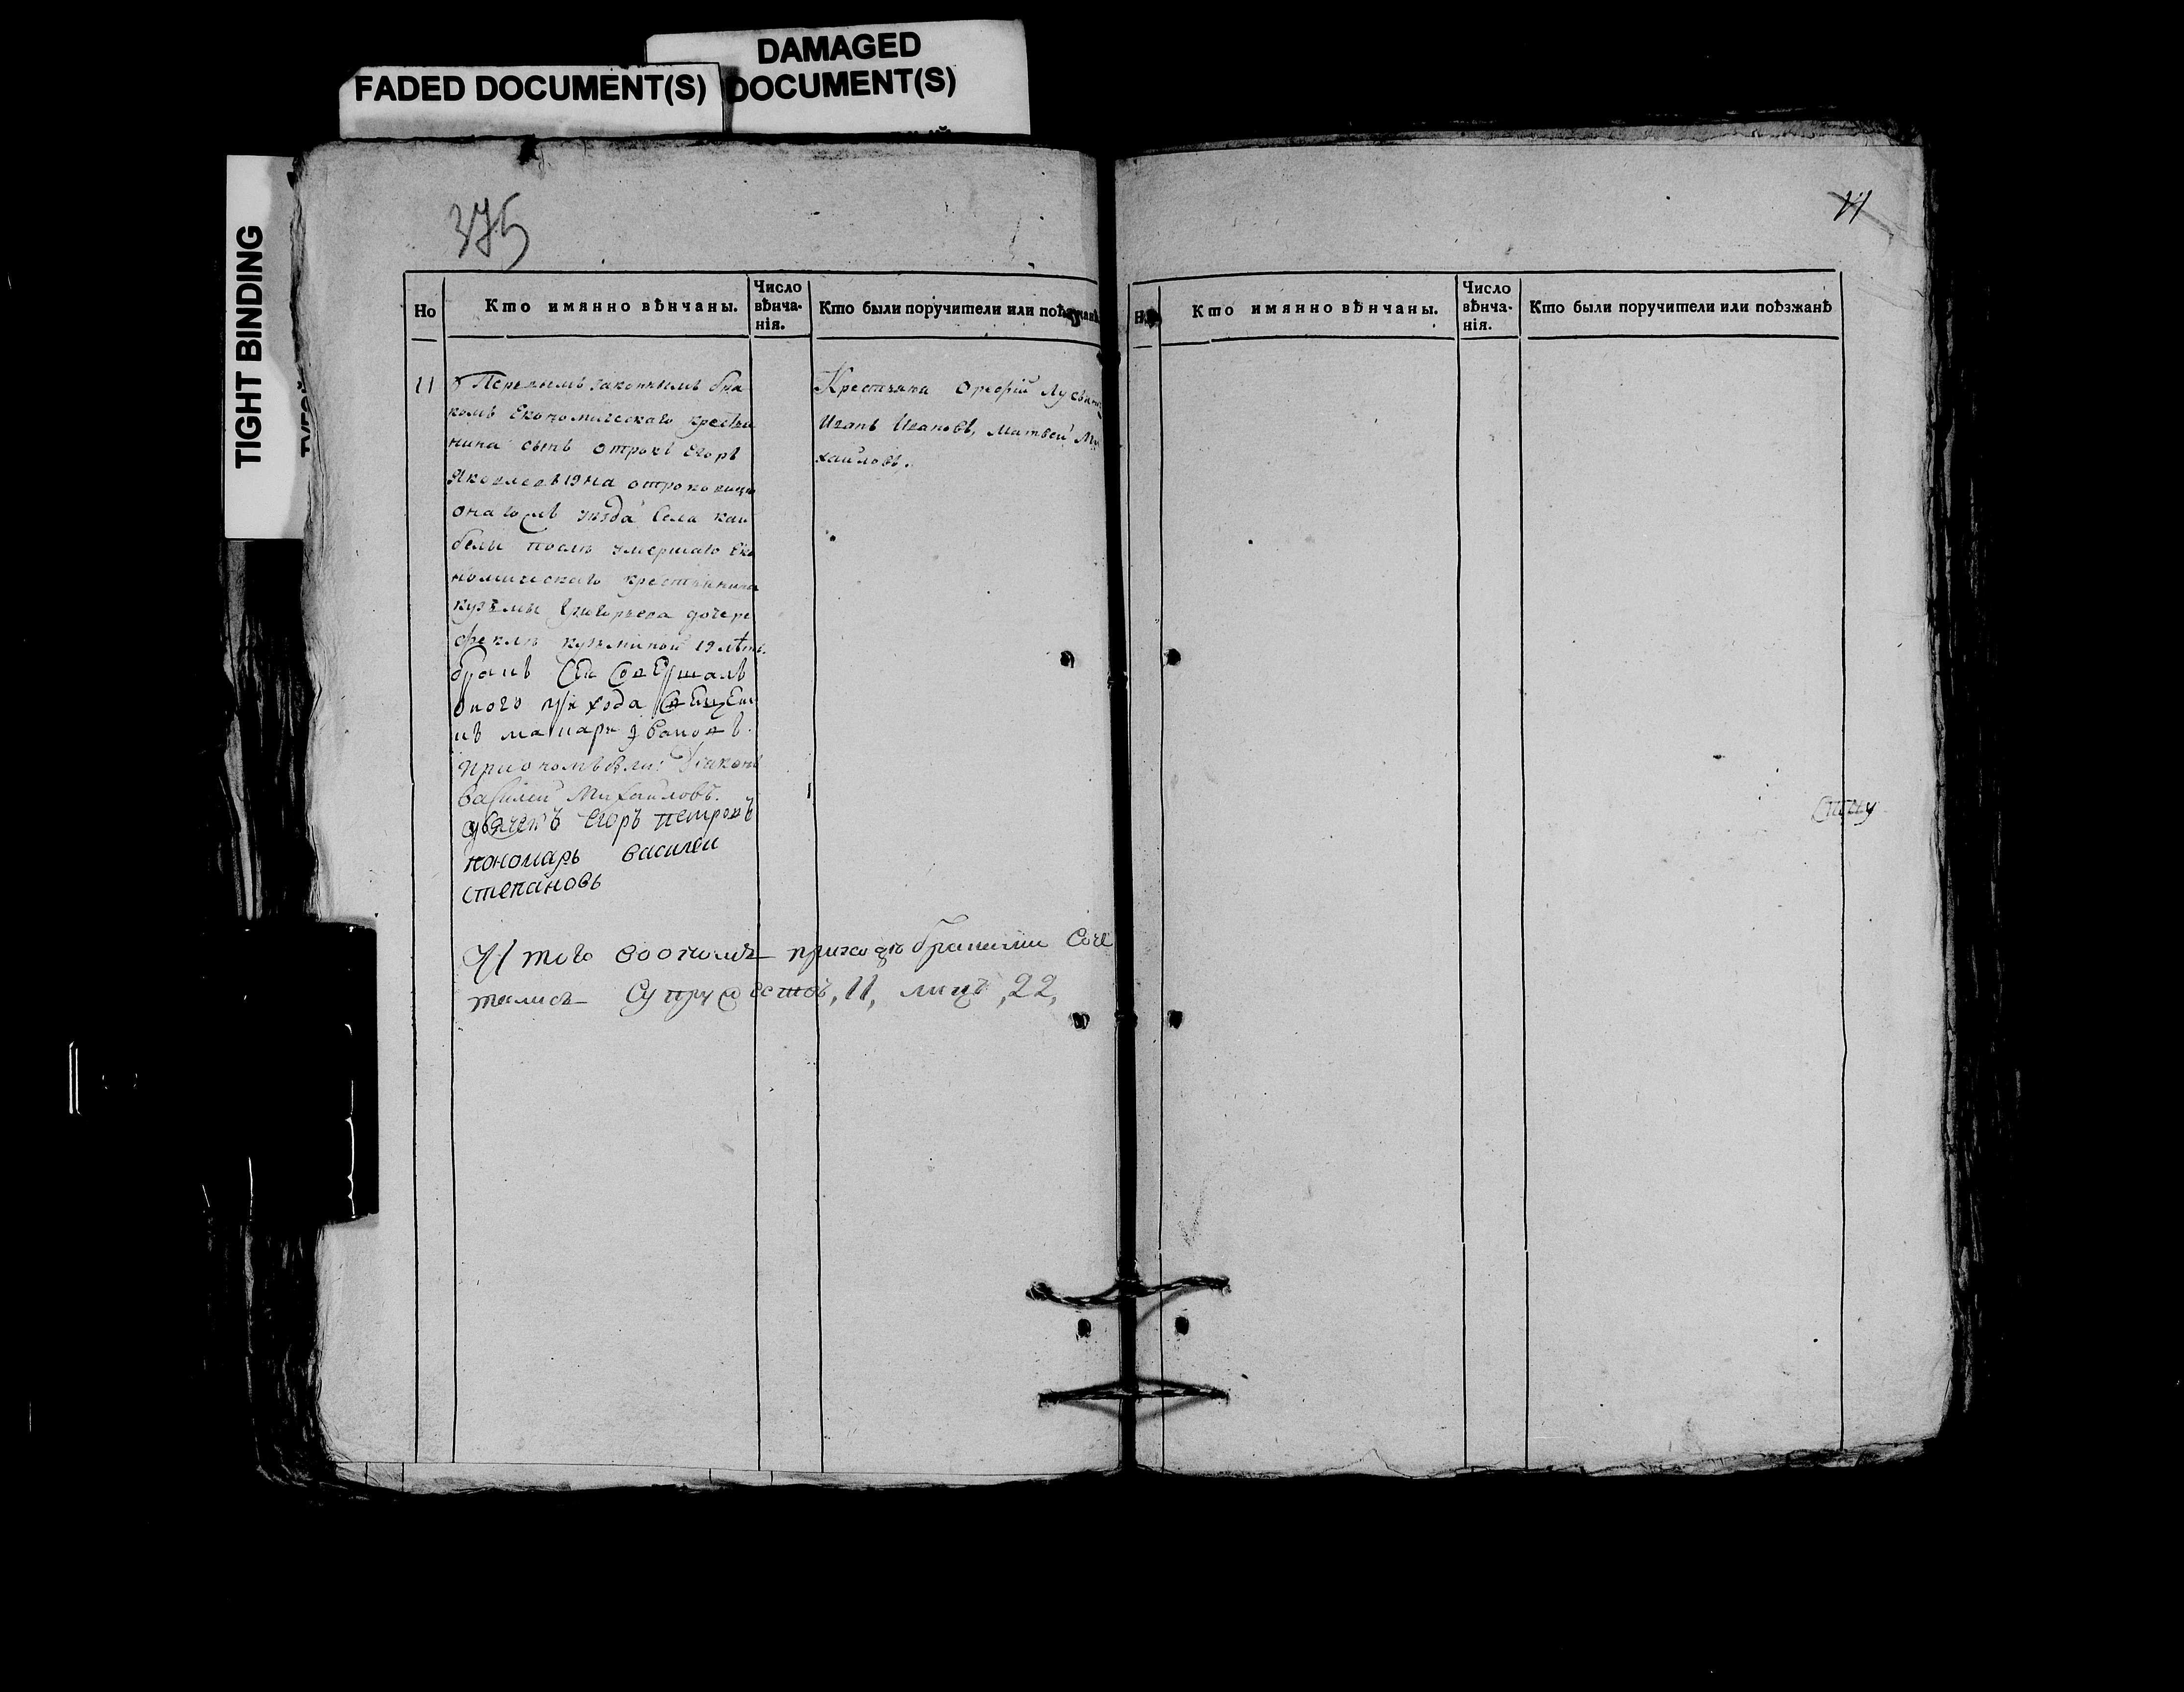 DAMAGED
DOCUMENT(S)
FADED DOCUMENT(S)
TIGHT BINDING
375
Но
Кто имянно вѣнчаны.
Число вѣнча-
нія.
Кто были поручители или поѣзжанѣ
11
Первымъ законнымъ бра
комъ Економическаго крестья
нина сынъ отрокъ Егоръ
Яковлевъ 19 на отроковицѣ
уѣзда Села
послѣ умершаго Еко
номическаго крестьянина
кузьмы Григорьева дочере
феклѣ кузьминой 19 лѣтъ.
бракъ Сей Совершалъ
оного прихода Священ
макарь Ивановъ.
при ономъ были: Диаконъ
Василей Михайловъ.
дьячекъ Егоръ петровъ
пономарь василеи
степановъ
Крестьяна
Иванъ Ивановъ, Матвей Ми
хаиловъ.
Итого воономъ приходѣ браками Соче
тались Супружествъ, 11, лицъ, 22,
11
Кто имянно вѣнчаны.
Число
вѣнча-
нія.
Кто были поручители или поѣзжанѣ